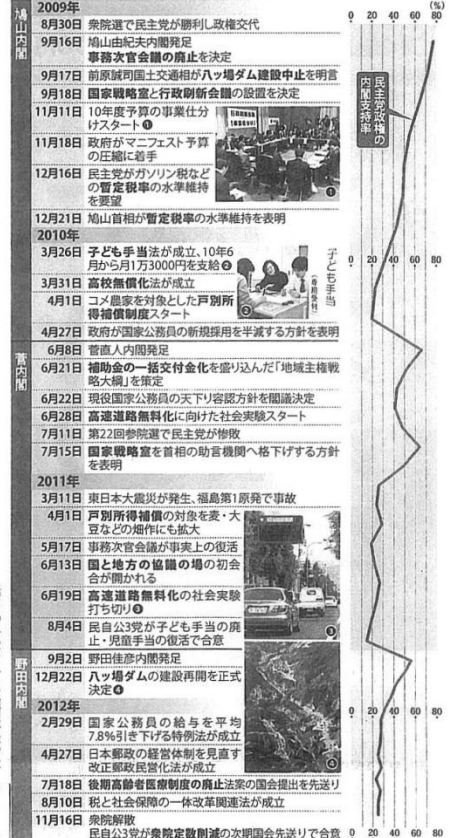 鳩山内閣
2009年
(%)
8月30日 衆院選で民主党が勝利し政権交代
0 20 40 60 80
9月16日 鳩山由紀夫内閣発足
事務次官会議の廃止を決定
9月17日 前原誠司国土交通相が八ッ場ダム建設中止を明言
9月18日 国家戦略室と行政刷新会議の設置を決定
民主党政権の
内閣支持率
11月11日 10年度予算の事業仕分
けスタート❶
11月18日 政府がマニフェスト予算
の圧縮に着手
12月16日 民主党がガソリン税など
の暫定税率の水準維持
を要望
❶
12月21日 鳩山首相が暫定税率の水準維持を表明
0 20 40 60 80
2010年
3月26日 子ども手当法が成立、10年6
月から月1万3000円を支給❷
子ども手当
3月31日 高校無償化法が成立
4月1日 コメ農家を対象とした戸別所
得補償制度スタート
❷
4月27日 政府が国家公務員の新規採用を半減する方針を表明
菅内閣
6月8日 菅直人内閣発足
6月21日 補助金の一括交付金化を盛り込んだ「地域主権戦
略大綱」を策定
6月22日 現役国家公務員の天下り容認方針を閣議決定
6月28日 高速道路無料化に向けた社会実験スタート
7月11日 第22回参院選で民主党が惨敗
7月15日 国家戦略室を首相の助言機関へ格下げする方針
を表明
2011年
0 20 40 60 80
3月11日 東日本大震災が発生、福島第1原発で事故
4月1日 戸別所得補償の対象を麦・大
豆などの畑作にも拡大
5月17日 事務次官会議が事実上の復活
6月13日 国と地方の協議の場の初会
合が開かれる
6月19日 高速道路無料化の社会実験
打ち切り❸
8月4日 民自公3党が子ども手当の廃
止・児童手当の復活で合意
❸
野田内閣
9月2日 野田佳彦内閣発足
12月22日 八ッ場ダムの建設再開を正式
決定❹
2012年
0 20 40 60 80
2月29日 国家公務員の給与を平均
7.8%引き下げる特例法が成立
4月27日 日本郵政の経営体制を見直す
改正郵政民営化法が成立
❹
7月18日 後期高齢者医療制度の廃止法案の国会提出を先送り
8月10日 税と社会保障の一体改革関連法が成立
11月16日 衆院解散
民自公3党が衆院定数削減の次期国会先送りで合意
0 20 40 60 80